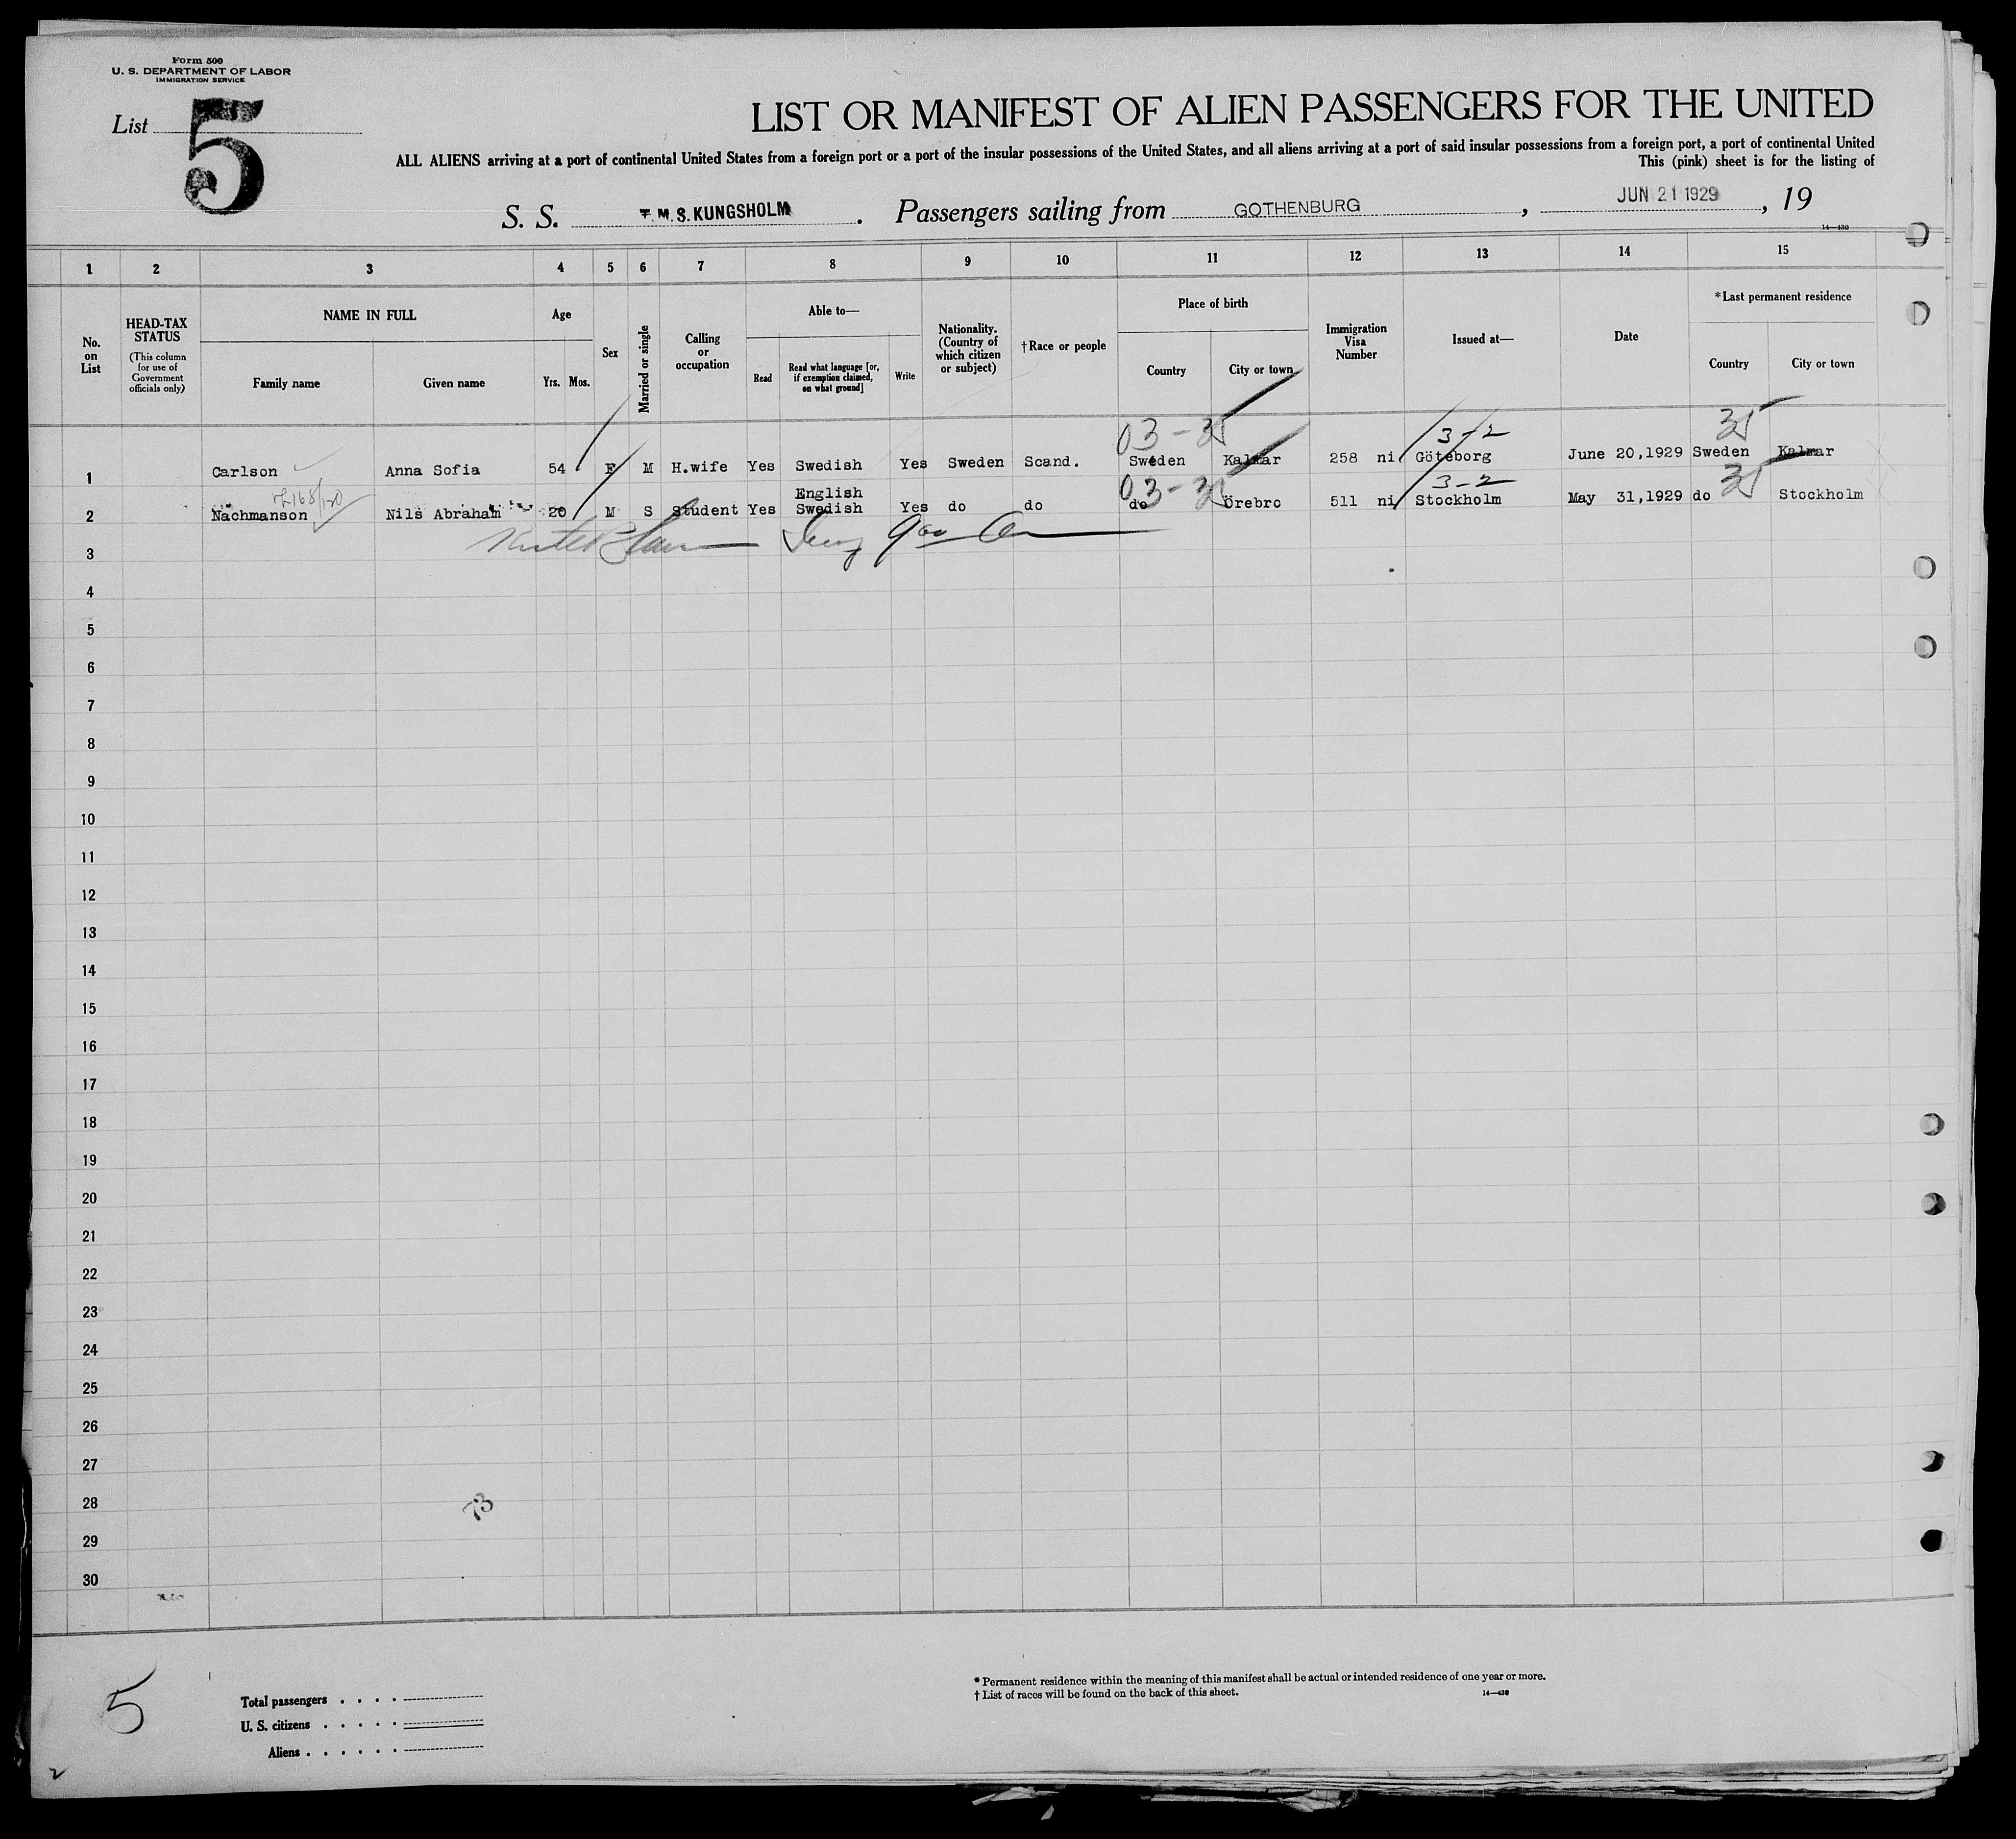 Form 500
U. S. DEPARTMENT OF LABOR
IMMIGRATION SERVICE
List 5
LIST OR MANIFEST OF ALIEN PASSENGERS FOR THE UNITED
ALL ALIENS arriving at a port of continental United States from a foreign port or a port of the insular possessions of the United States, and all aliens arriving at a port of said insular possessions from a foreign port, a port of continental United
This (pink) sheet is for the listing of
S. S. M.S. KUNGSHOLM . Passengers sailing from GOTHENBURG , JUN 21 1929 , 19
14—430
1 2 3 4 5 6 7 8 9 10 11 12 13 14 15
No. on List
HEAD-TAX STATUS
(This column for use of Government officials only)
NAME IN FULL
Family name Given name
Age
Yrs. Mos.
Sex
Married or single
Calling or occupation
Able to—
Read
Read what language [or, if exemption claimed, on what ground]
Write
Nationality. (Country of which citizen or subject)
†Race or people
Place of birth
Country City or town
Immigration Visa Number
Issued at—
Date
*Last permanent residence
Country City or town
03-35 3-2 35
1 Carlson Anna Sofia 54 F M H.wife Yes Swedish Yes Sweden Scand. Sweden Kalmar 258 ni Göteborg June 20,1929 Sweden Kalmar
English
03-35 3-2 35
2 Nachmanson Nils Abraham 20 M S Student Yes Swedish Yes do do do Örebro 511 ni Stockholm May 31,1929 do Stockholm
3
4
5
6
7
8
9
10
11
12
13
14
15
16
17
18
19
20
21
22
23
24
25
26
27
28
73
29
30
5
Total passengers . . . .
U. S. citizens . . . . .
Aliens . . . . . .
* Permanent residence within the meaning of this manifest shall be actual or intended residence of one year or more.
† List of races will be found on the back of this sheet.
14—430
2